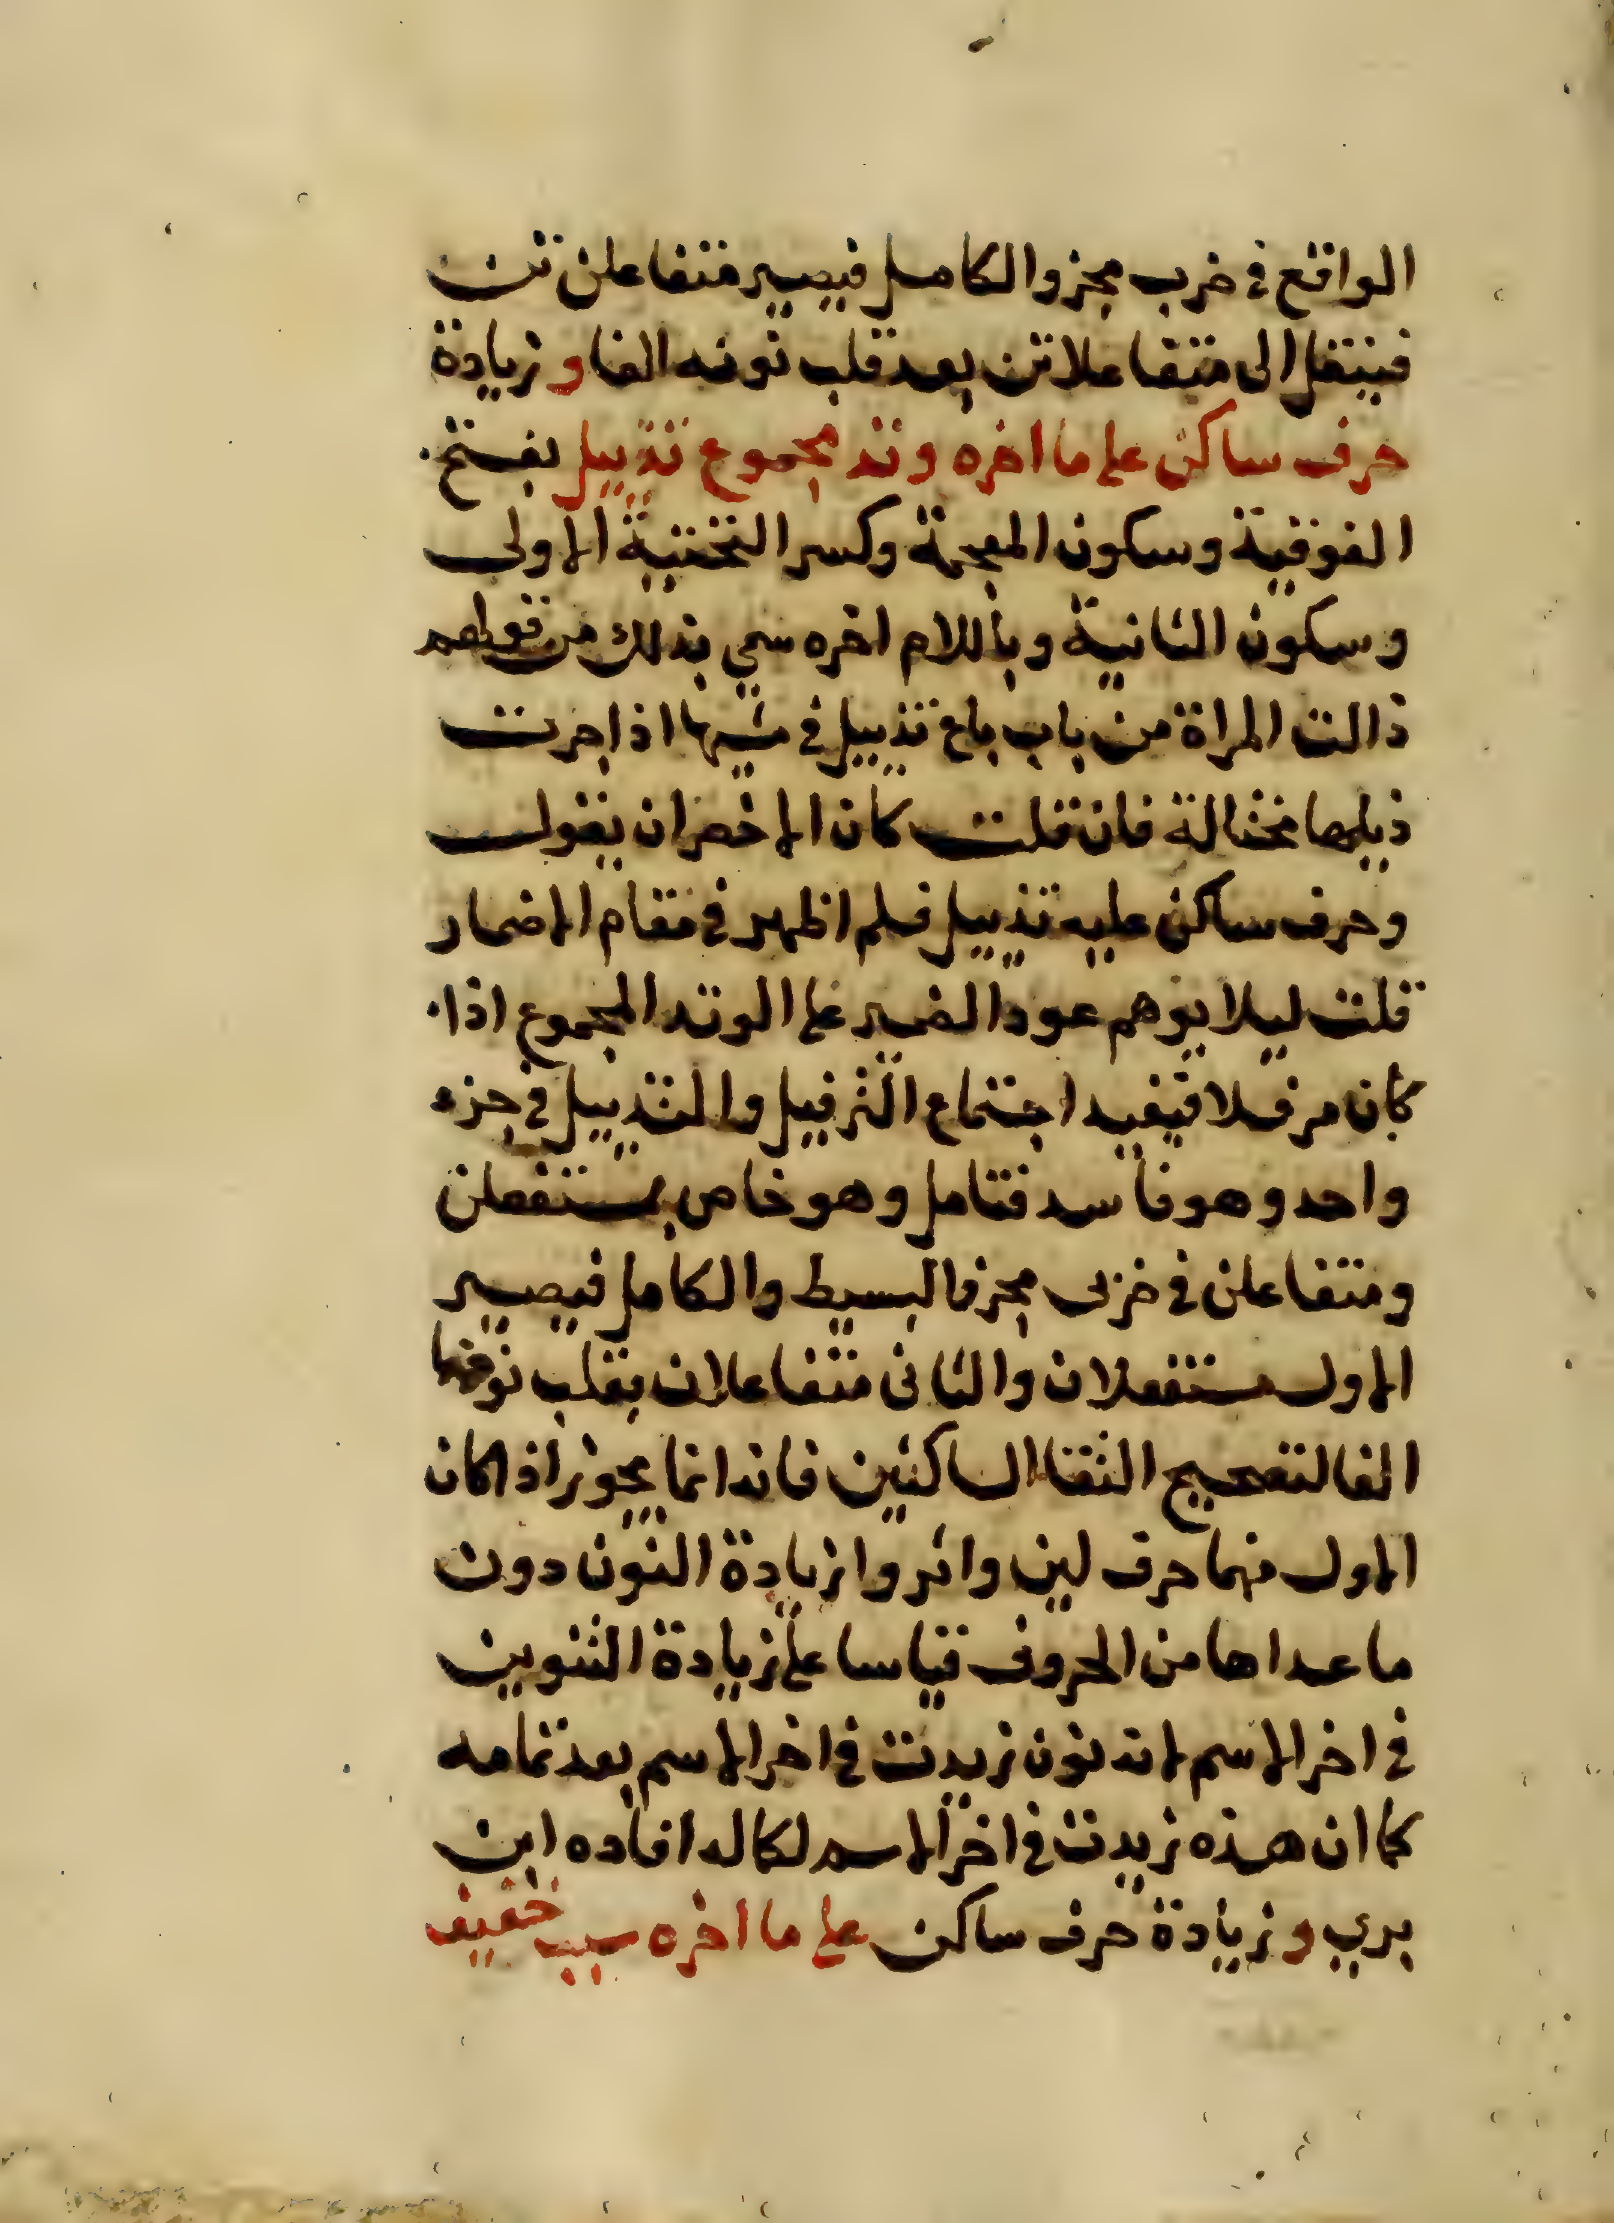 الواقع في ضرب مجزو الكامل فيصير متفاعلن تن
فينتقل الى متفاعلاتن بعد قلب نونه الفا و زيادة
حرف ساكن على ما اخره وتد مجموع تذييل بفتح
الفوقية وسكون المعجمة وكسر التحتية الاولى
وسكون الثانية وباللام اخره سمي بذلك من قولهم
ذالت المراة من باب باع تذييل في مشيها اذا جرت
ذيلها مختالة فان قلت كان الاخصر ان يقول
وحرف ساكن عليه تذييل فلم اظهر في مقام الاضمار
قلت ليلا يوهم عود الضمير على الوتد المجموع اذا
كان مرفلا فيفيد اجتماع الترفيل والتذييل في جزء
واحد وهو فاسد فتامل وهو خاص بمستفعلن
ومتفاعلن في ضربى مجزو البسيط والكامل فيصير
الاول مستفعلان والثانى متفاعلان بقلب نونهما
الفا لتصحيح التقا الساكنين فانه انما يجوز اذا كان
الاول منهما حرف لين واثروا زيادة النون دون
ما عداها من الحروف قياسا على زيادة التنوين
في اخر الاسم لانه نون زيدت في اخر الاسم بعد تمامه
كما ان هذه زيدت في اخر الاسم لكماله افاده ابن
بري و زيادة حرف ساكن على ما اخره سبب خفيف